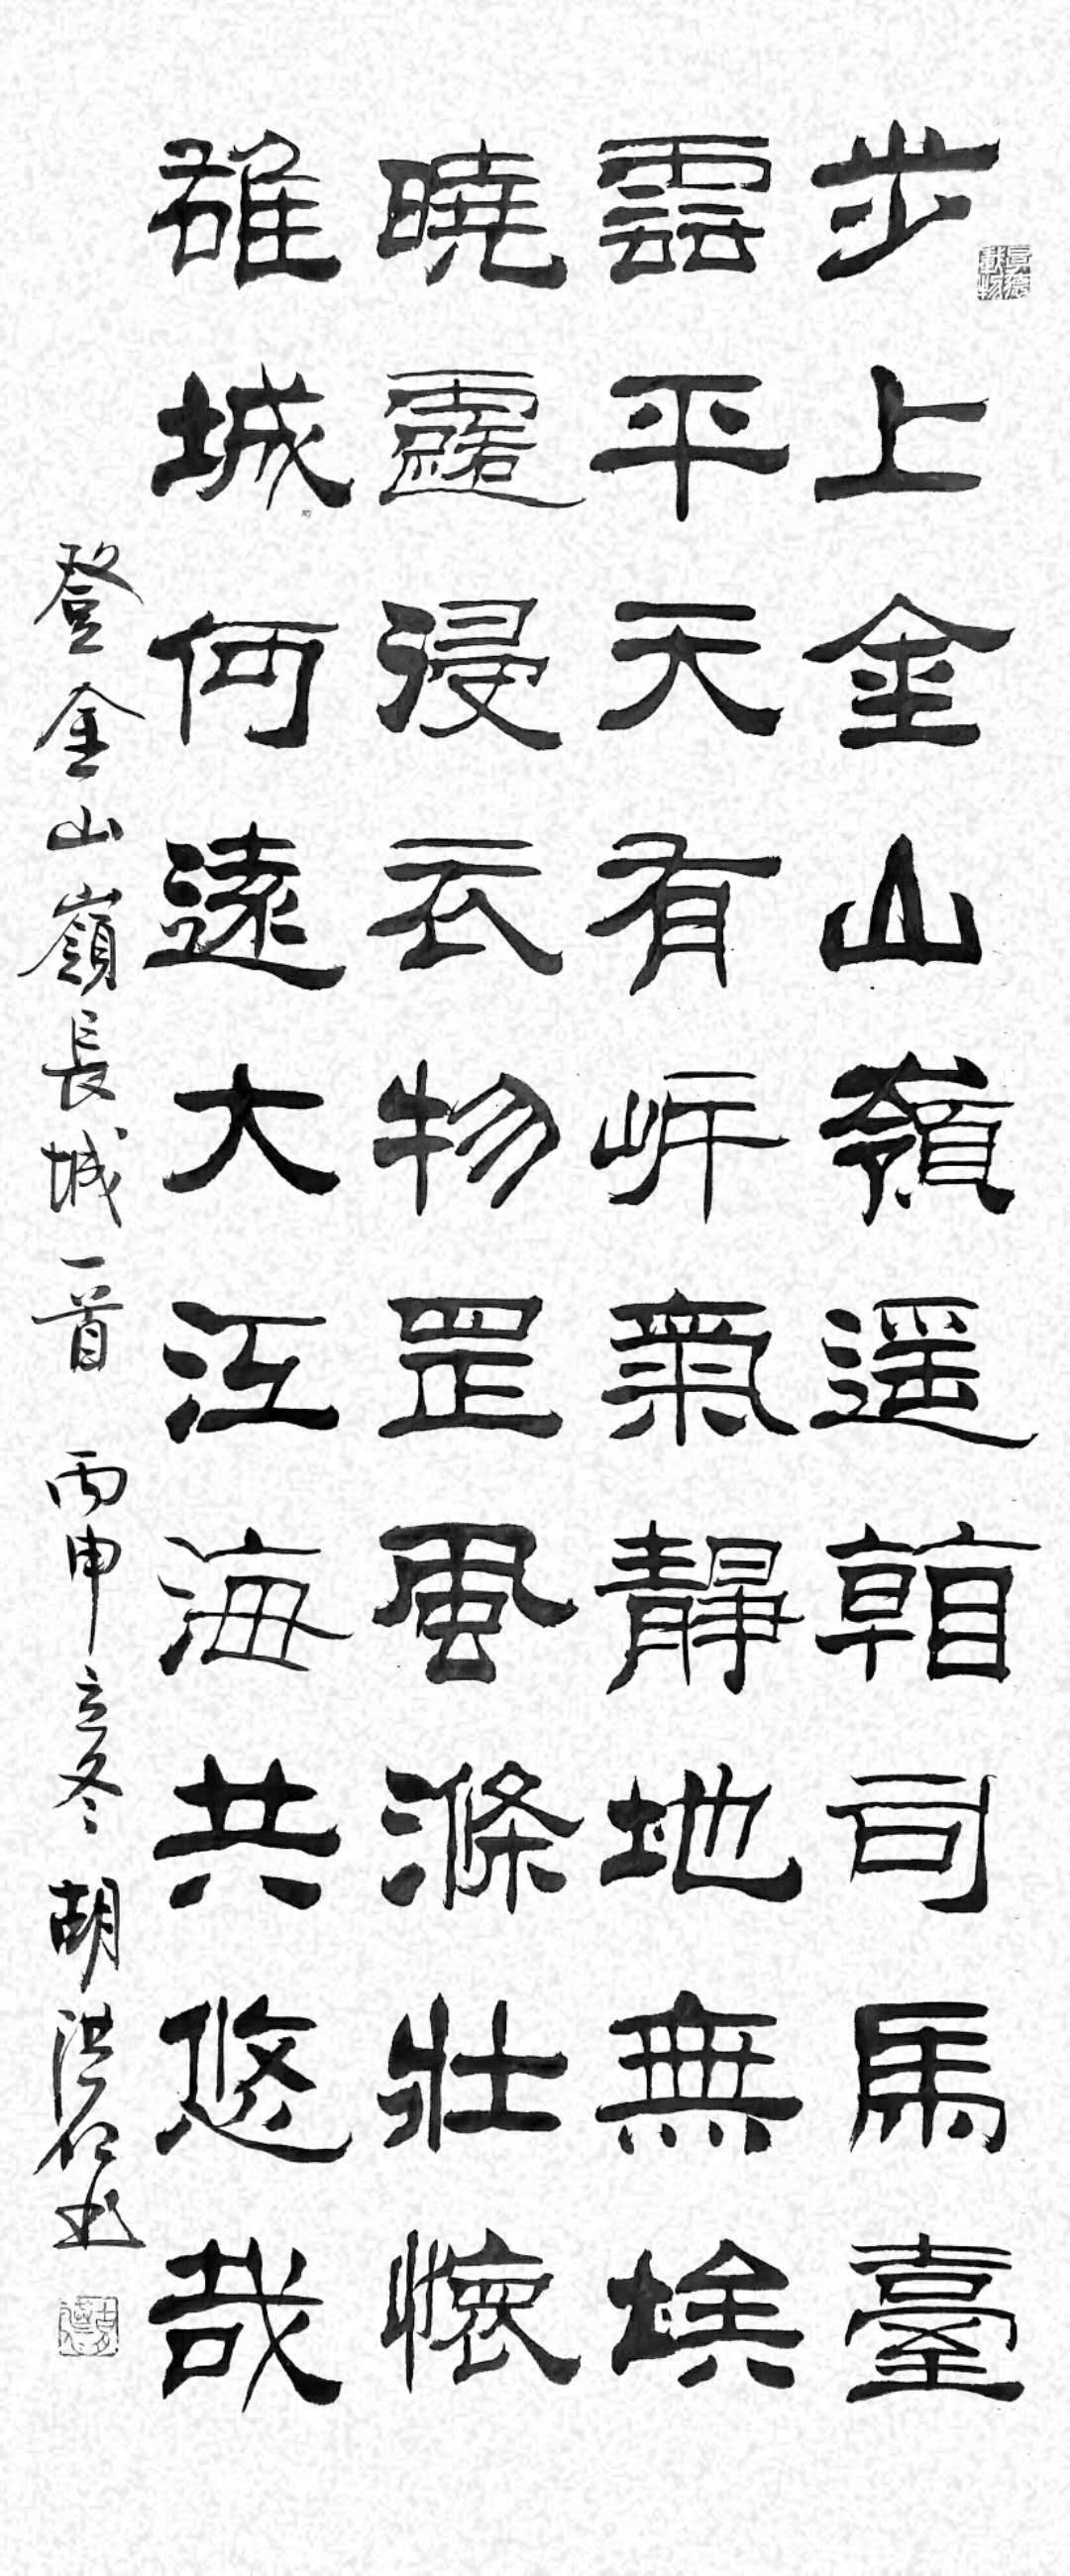 步上金山嶺遥看司馬臺
雲平天有岸氣靜地無埃
曉露浸衣物罡風滌壯懷
雄城何遠大江海共悠哉
登金山嶺長城一首 丙申立冬 胡洪仁书
厚德載物